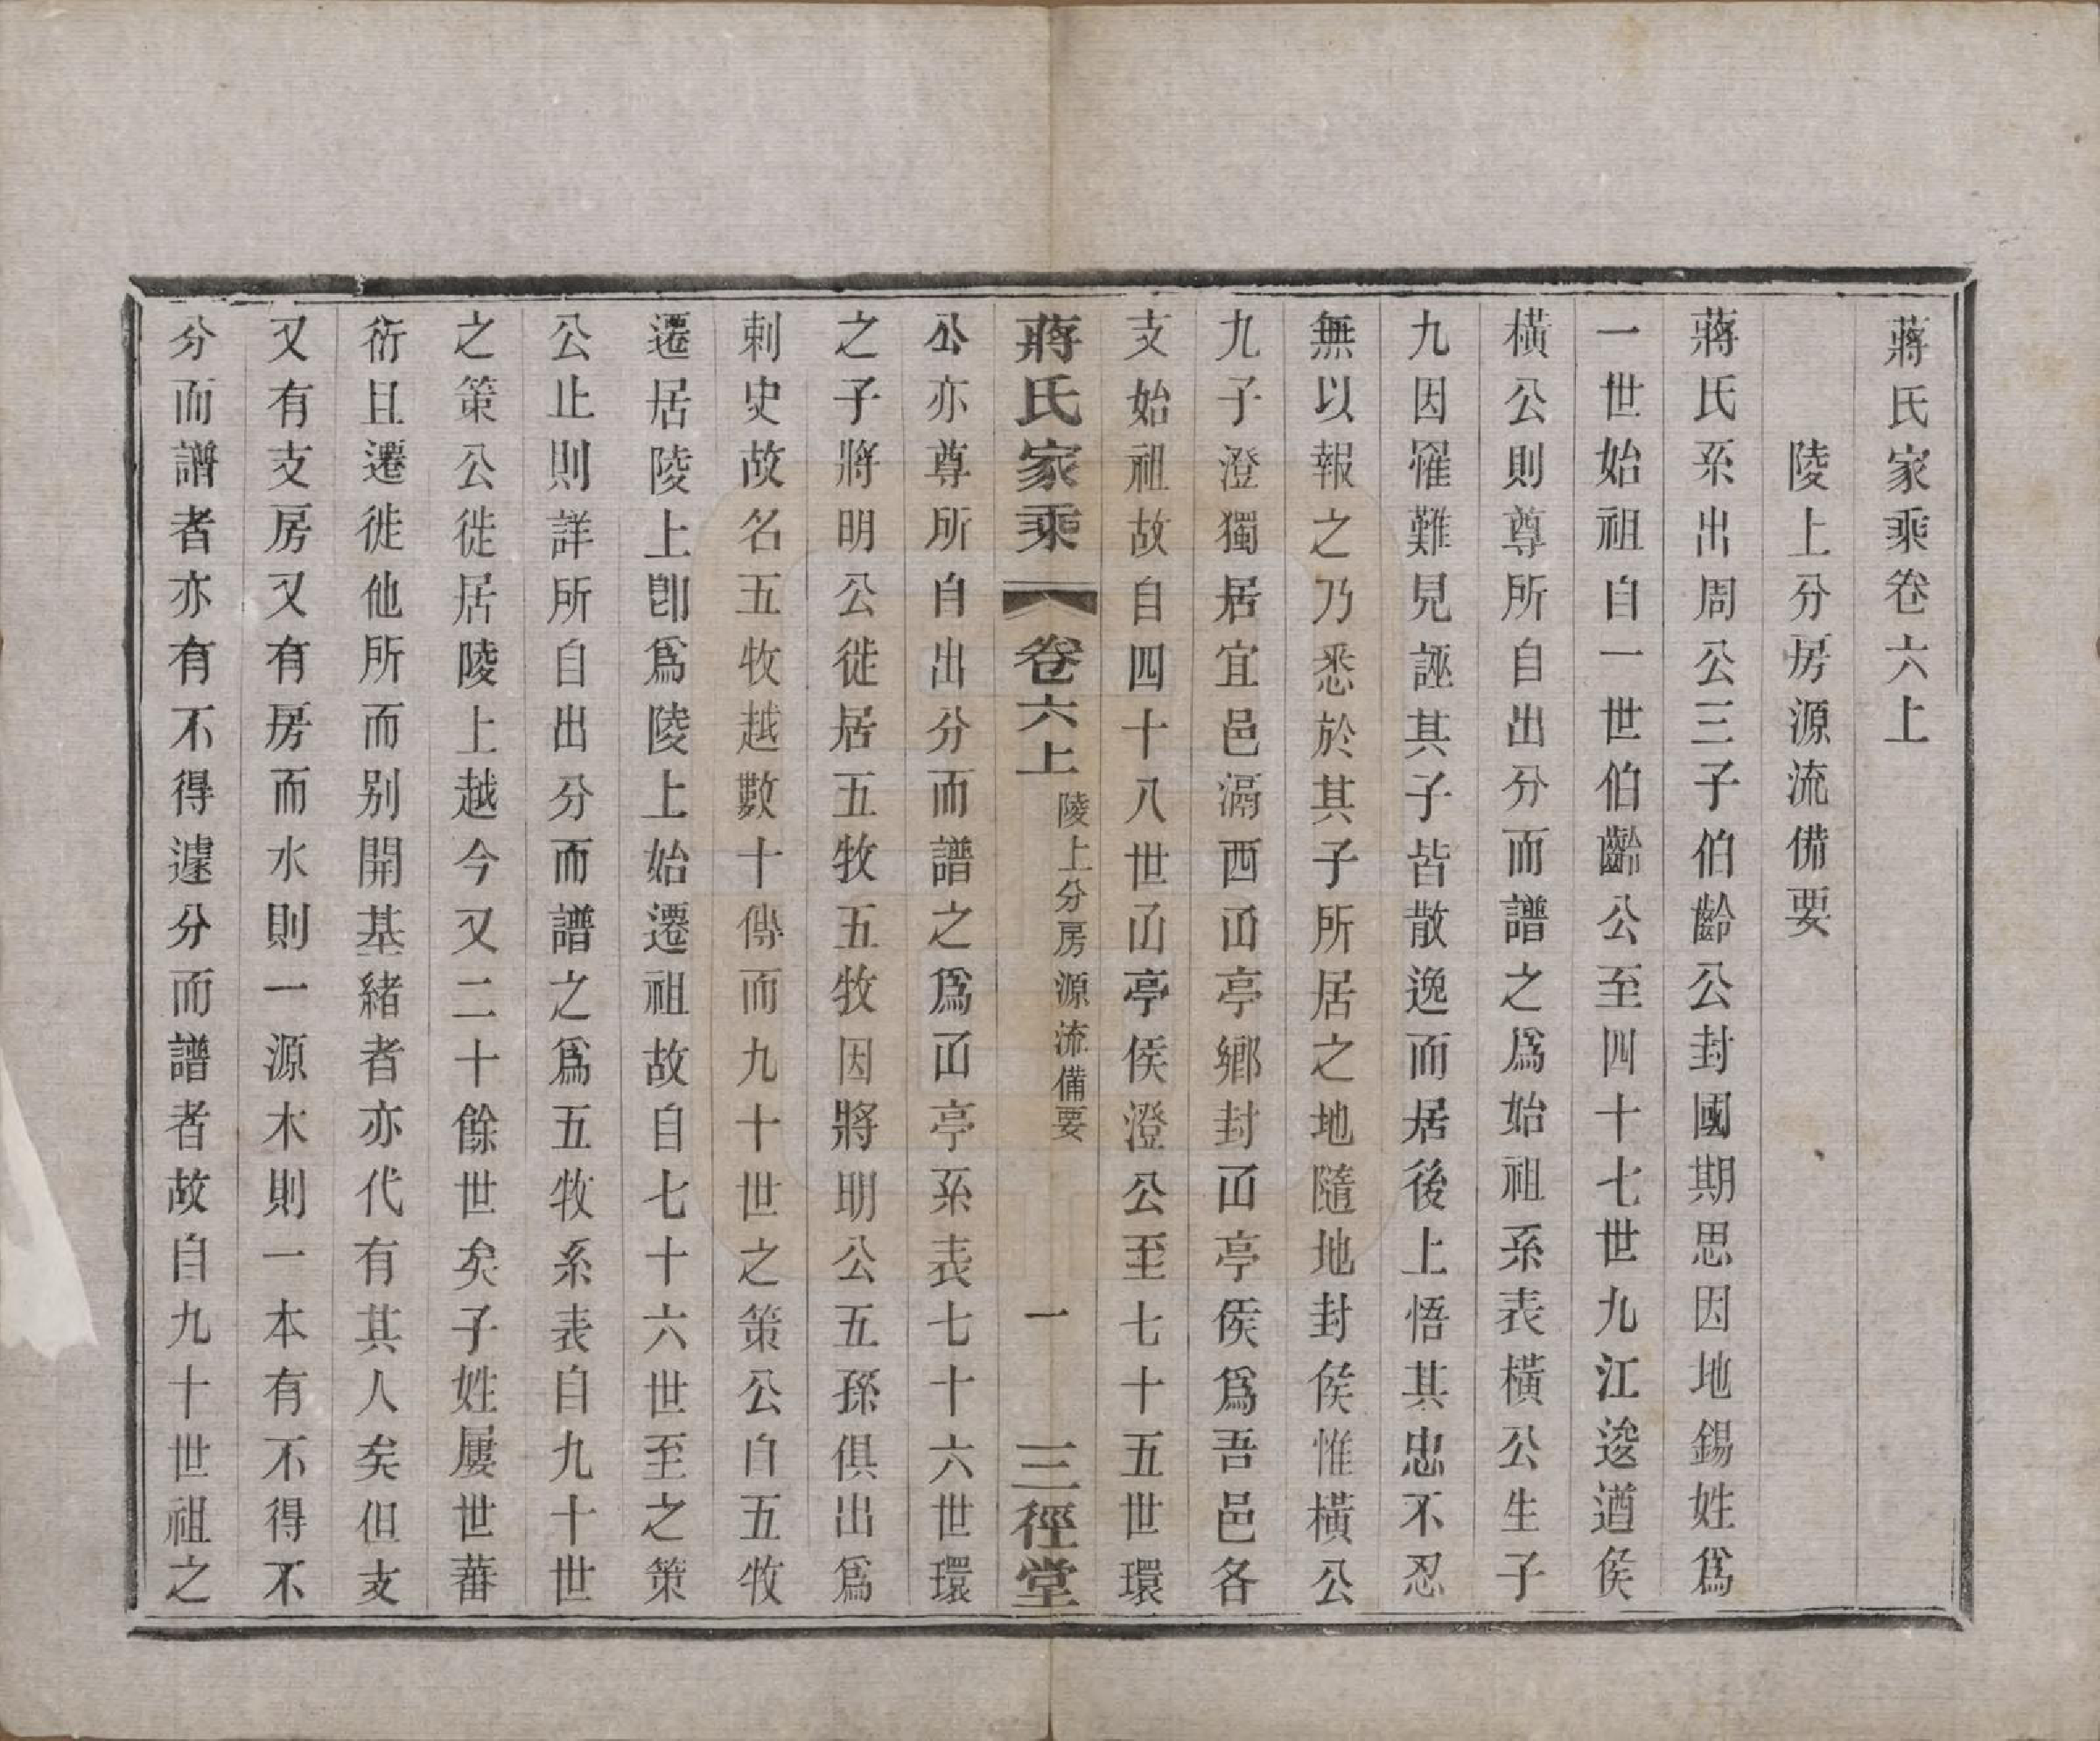 蔣氏家乘卷六上
陵上分房源流備要
蔣氏系出周公三子伯齡公封國期思因地錫姓爲
一世始祖自一世伯齡公至四十七世九江逡遒侯
橫公則尊所自出分而譜之爲始祖系表橫公生子
九因罹難見誣其子皆散逸而居後上悟其忠不忍
無以報之乃悉於其子所居之地隨地封侯惟橫公
九子澄獨居宜邑滆西㞧亭鄉封㞧亭侯爲吾邑各
支始祖故自四十八世㞧亭侯澄公至七十五世環
公亦尊所自出分而譜之爲㞧亭系表七十六世環
之子將明公徙居五牧五牧因將明公五孫俱出爲
刺史故名五牧越數十傳而九十世之策公自五牧
遷居陵上卽爲陵上始遷祖故自七十六世至之策
公止則詳所自出分而譜之爲五牧系表自九十世
之策公徙居陵上越今又二十餘世矣子姓屢世蕃
衍且遷徙他所而別開基緒者亦代有其人矣但支
又有支房又有房而水則一源木則一本有不得不
分而譜者亦有不得遽分而譜者故自九十世祖之
蔣氏家乘 卷六上 陵上分房源流備要 一 三徑堂